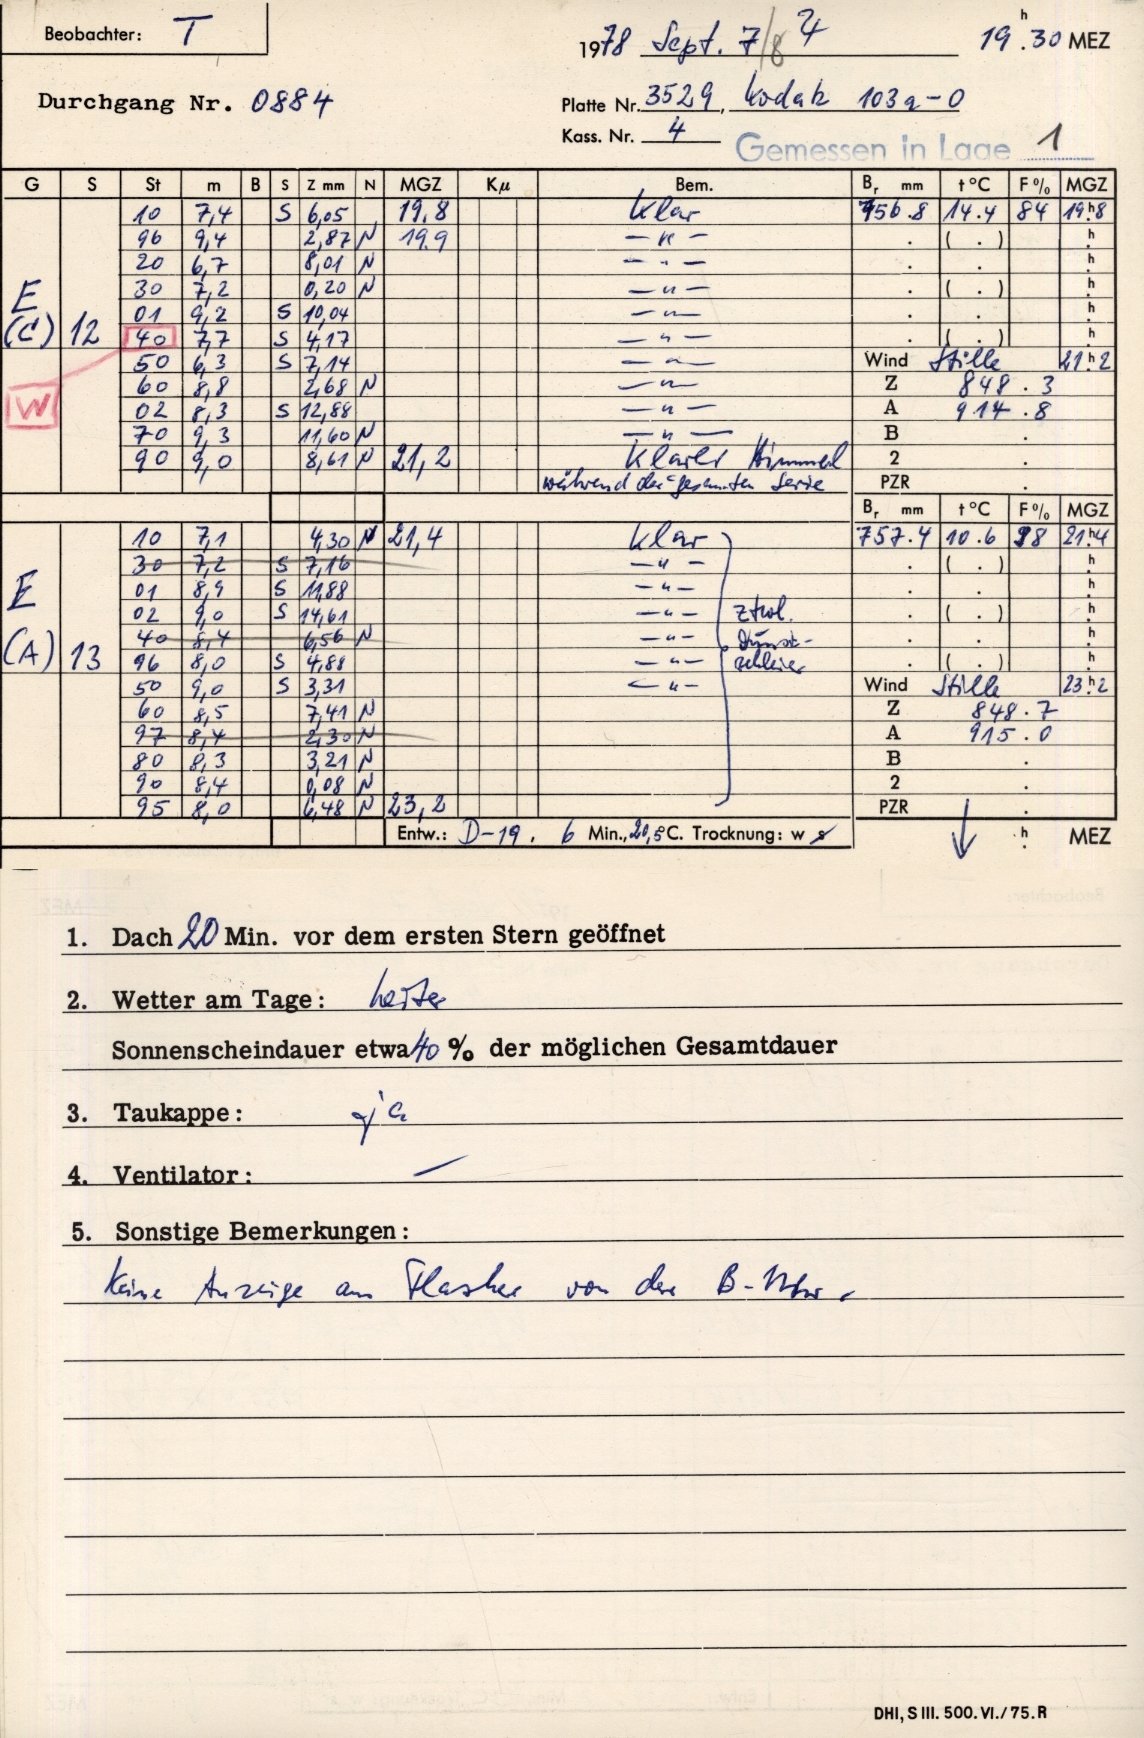 Beobachter: T
1978 Sept. 7/8 4 19h.30 MEZ
Durchgang Nr. 0884
Platte Nr. 3529, Kodak 103a-O
Kass. Nr. 4
Gemessen in Lage 1
G S St m B S Z mm N MGZ Kμ Bem. Br mm t°C F% MGZ
10 7,4 S 6,05 19,8 Klar 756.8 14.4 84 19h8
96 9,4 2,87 N 19.9 —"— . ( . ) h
20 6,7 8,01 N —"— . . h
30 7,2 0,20 N —"— . ( . ) h
E 01 9,2 S 10,04 —"— . . h
(C) 12 40 7,7 S 4,17 —"— . ( . ) h
50 6,3 S 7,14 —"— Wind Stille 21h2
W 60 8,8 2,68 N —"— Z 848.3
02 8,3 S 12,88 —"— A 914.8
70 9,3 11,60 N —"— B .
90 9,0 8,61 N 21,2 Klarer Himmel 2 .
während der gesamten Serie PZR .
Br mm t°C F% MGZ
10 7,1 4,30 N 21,4 Klar 757.4 10.6 98 21h4
30 7,2 S 7,16 —"— . ( . ) h
E 01 8,9 S 11,88 —"— . . h
02 9,0 S 14,61 —"— ztwl. . ( . ) h
40 8,4 6,56 N —"— Dunst- . . h
(A) 13 96 8,0 S 4,88 —"— schleier . ( . ) h
50 9,0 S 3,31 —"— Wind Stille 23h2
60 8,5 7,41 N Z 848.7
97 8,4 2,30 N A 915.0
80 8,3 3,21 N B .
90 8,4 0,08 N 2 .
95 8,0 6,48 N 23,2 PZR .
Entw.: D-19. 6 Min., 20,5°C. Trocknung: w s h. MEZ
1. Dach 20 Min. vor dem ersten Stern geöffnet
2. Wetter am Tage: heiter
Sonnenscheindauer etwa 40 % der möglichen Gesamtdauer
3. Taukappe: ja
4. Ventilator: —
5. Sonstige Bemerkungen:
Keine Anzeige am Flasher von der B-Uhr.
DHI, S III. 500. VI./75. R